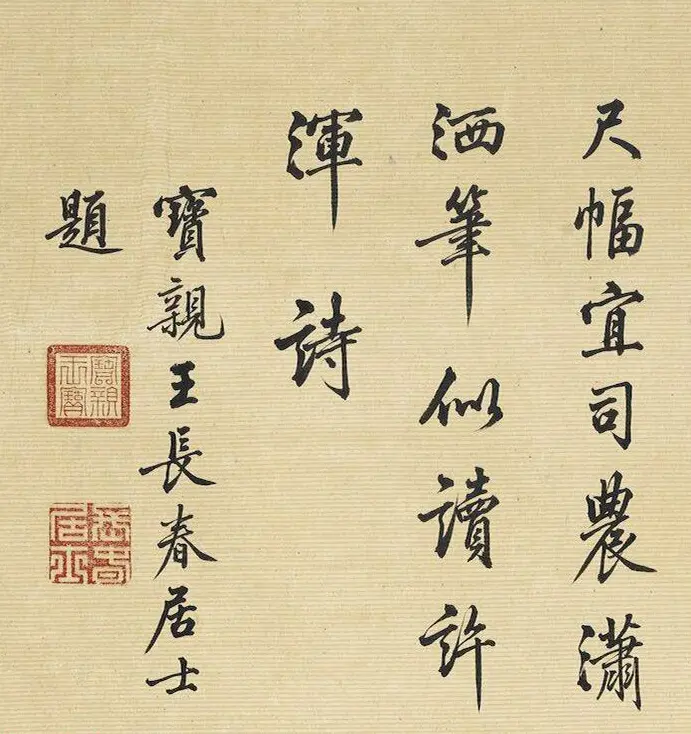 尺幅宜司農瀟
洒筆似讀許
渾詩
寶親王長春居士
題
寶親王寶
長春居士